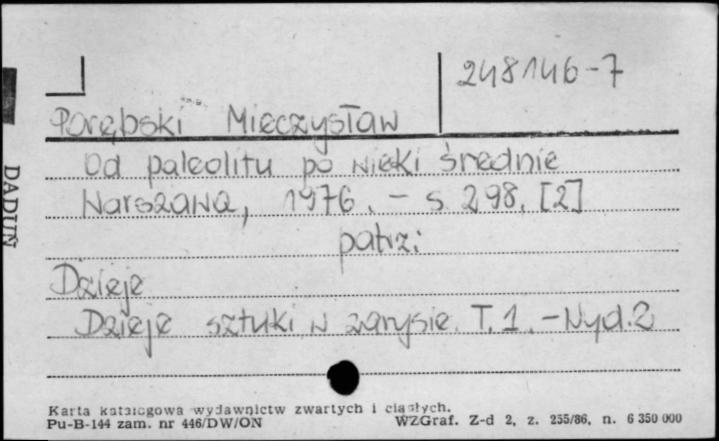 248146-7
Porębski Mieczysław
Od paleolitu po wieki średnie
Warszawa, 1976. - s. 298, [2]
patrz:
Dzieje
Dzieje sztuki w zarysie. T. 1. - Wyd. 2
Karta katalogowa wydawnictw zwartych i ciągłych.
Pu-B-144 zam. nr 446/DW/ON
WZGraf. Z-d 2, z. 255/86, n. 6 350 000
DADUŃ